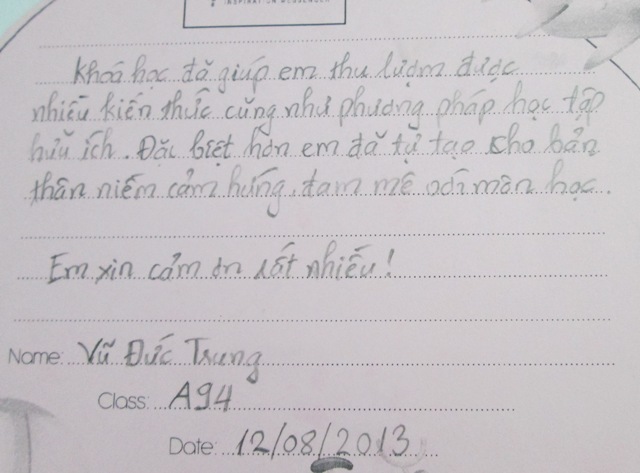 INSPIRATION MESSENGER
Khoá học đã giúp em thu lượm được
nhiều kiến thức cũng như phương pháp học tập
hữu ích. Đặc biệt hơn em đã tự tạo cho bản
thân niềm cảm hứng, đam mê với môn học.
Em xin cảm ơn rất nhiều!
Name: Vũ Đức Trung
Class: A94
Date: 12/08/2013